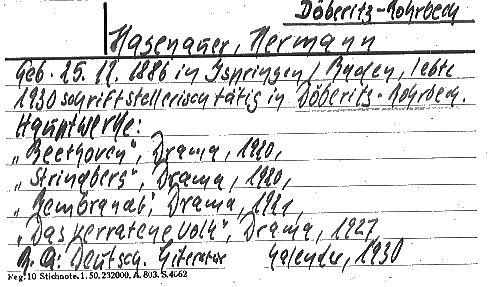 Döberitz-Rohrbeck
Hasenauer, Hermann
Geb. 25. 12. 1886 in Ispringen / Baden, lebte
1930 schriftstellerisch tätig in Döberitz-Rohrbeck.
Hauptwerke:
„Beethoven", Drama, 1920,
„Strindberg", Drama, 1920,
„Rembrandt", Drama, 1921,
„Das verratene Volk", Drama, 1927
N. A: Deutsch. Literatur Kalender, 1930
Neg: 10 Stichnote. 1. 50. 232000. A. 803. S. 4062